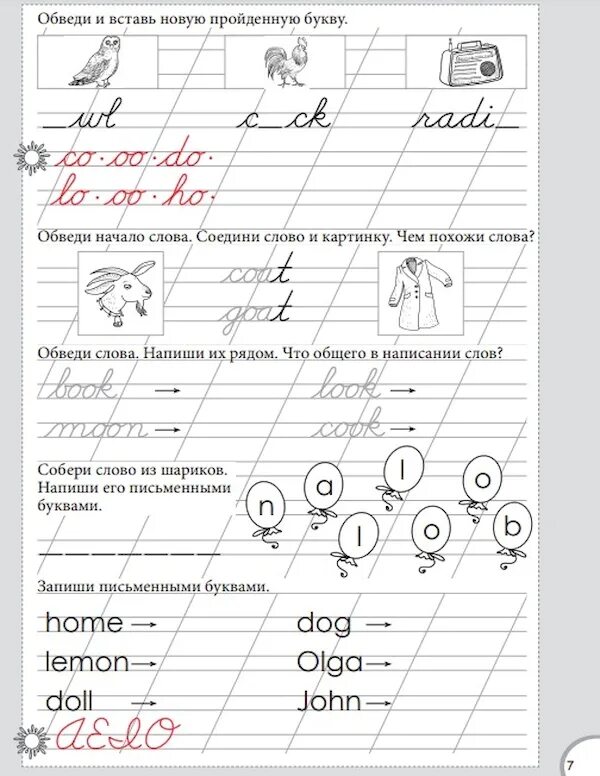 Обведи и вставь новую пройденную букву.
_wl c_ck radi_
co · oo · do ·
lo · oo · ho ·
Обведи начало слова. Соедини слово и картинку. Чем похожи слова?
coat
goat
Обведи слова. Напиши их рядом. Что общего в написании слов?
book → look →
moon → cook →
Собери слово из шариков.
Напиши его письменными
буквами.
n a l o
l o b
_ _ _ _ _ _ _
Запиши письменными буквами.
home → dog →
lemon → Olga →
doll → John →
A E I O
7